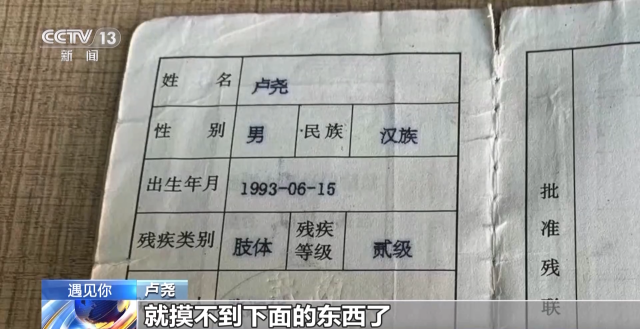 CCTV 13
新闻
姓 名 卢尧
性 别 男 民族 汉族
出生年月 1993-06-15
残疾类别 肢体 残疾等级 贰级
批准残联
遇见你 卢尧
就摸不到下面的东西了